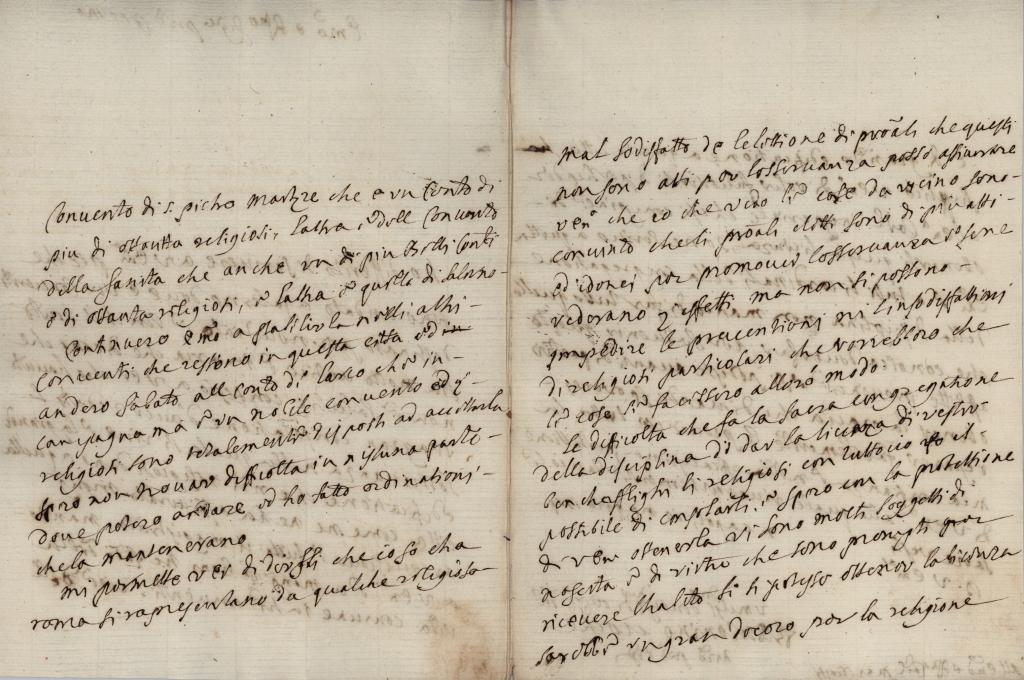 Convento di s. pietro martyre che e un Conto di
piu di ottanta religiosi, l'altra è dell Convento
della Sanita che anche un di piu belli Conti
e di ottanta religiosi, e l'altra è quella di
Continuero a stabilirla nelli altri
Conventi che restono in questa citta ed in
andero sabato all conto di ch'è in
campagna ma è un nobile convento ed i
religiosi sono totalemente disposti ad accettarla
spero non trovar difficolta in nisuna parte
dove potero andare ed ho fatto ordinationi
che la mantenerano
mi permette di dirgli che costo cha
roma si rapresentano da qualche religioso
mal sodisfatto de lelettione di proali che questi
non sono atti per l'osservanza posso assicurare
che io che vedo le cose da vicino sono
convinto che li proali eletti sono di piu atti
ed idonei per promover l'osservanza e se ne
vederano gl effetti ma non si possono
impedire le preventioni ni l'insodisfattioni
di religiosi particolari che vorrebbero che
le cose si facessero alloro modo.
le difficolta che fa la sacra congregatione
della disciplina di dar la licenza di vestire
benche li religiosi con tuttocio il
possibile di è spero con la protettione
di ottenerla vi sono molti soggetti di
nascita e di virtu che sono pronti per
ricevere l'habito se si potesse ottener la licenza
sarebbe un gran decoro per la religione